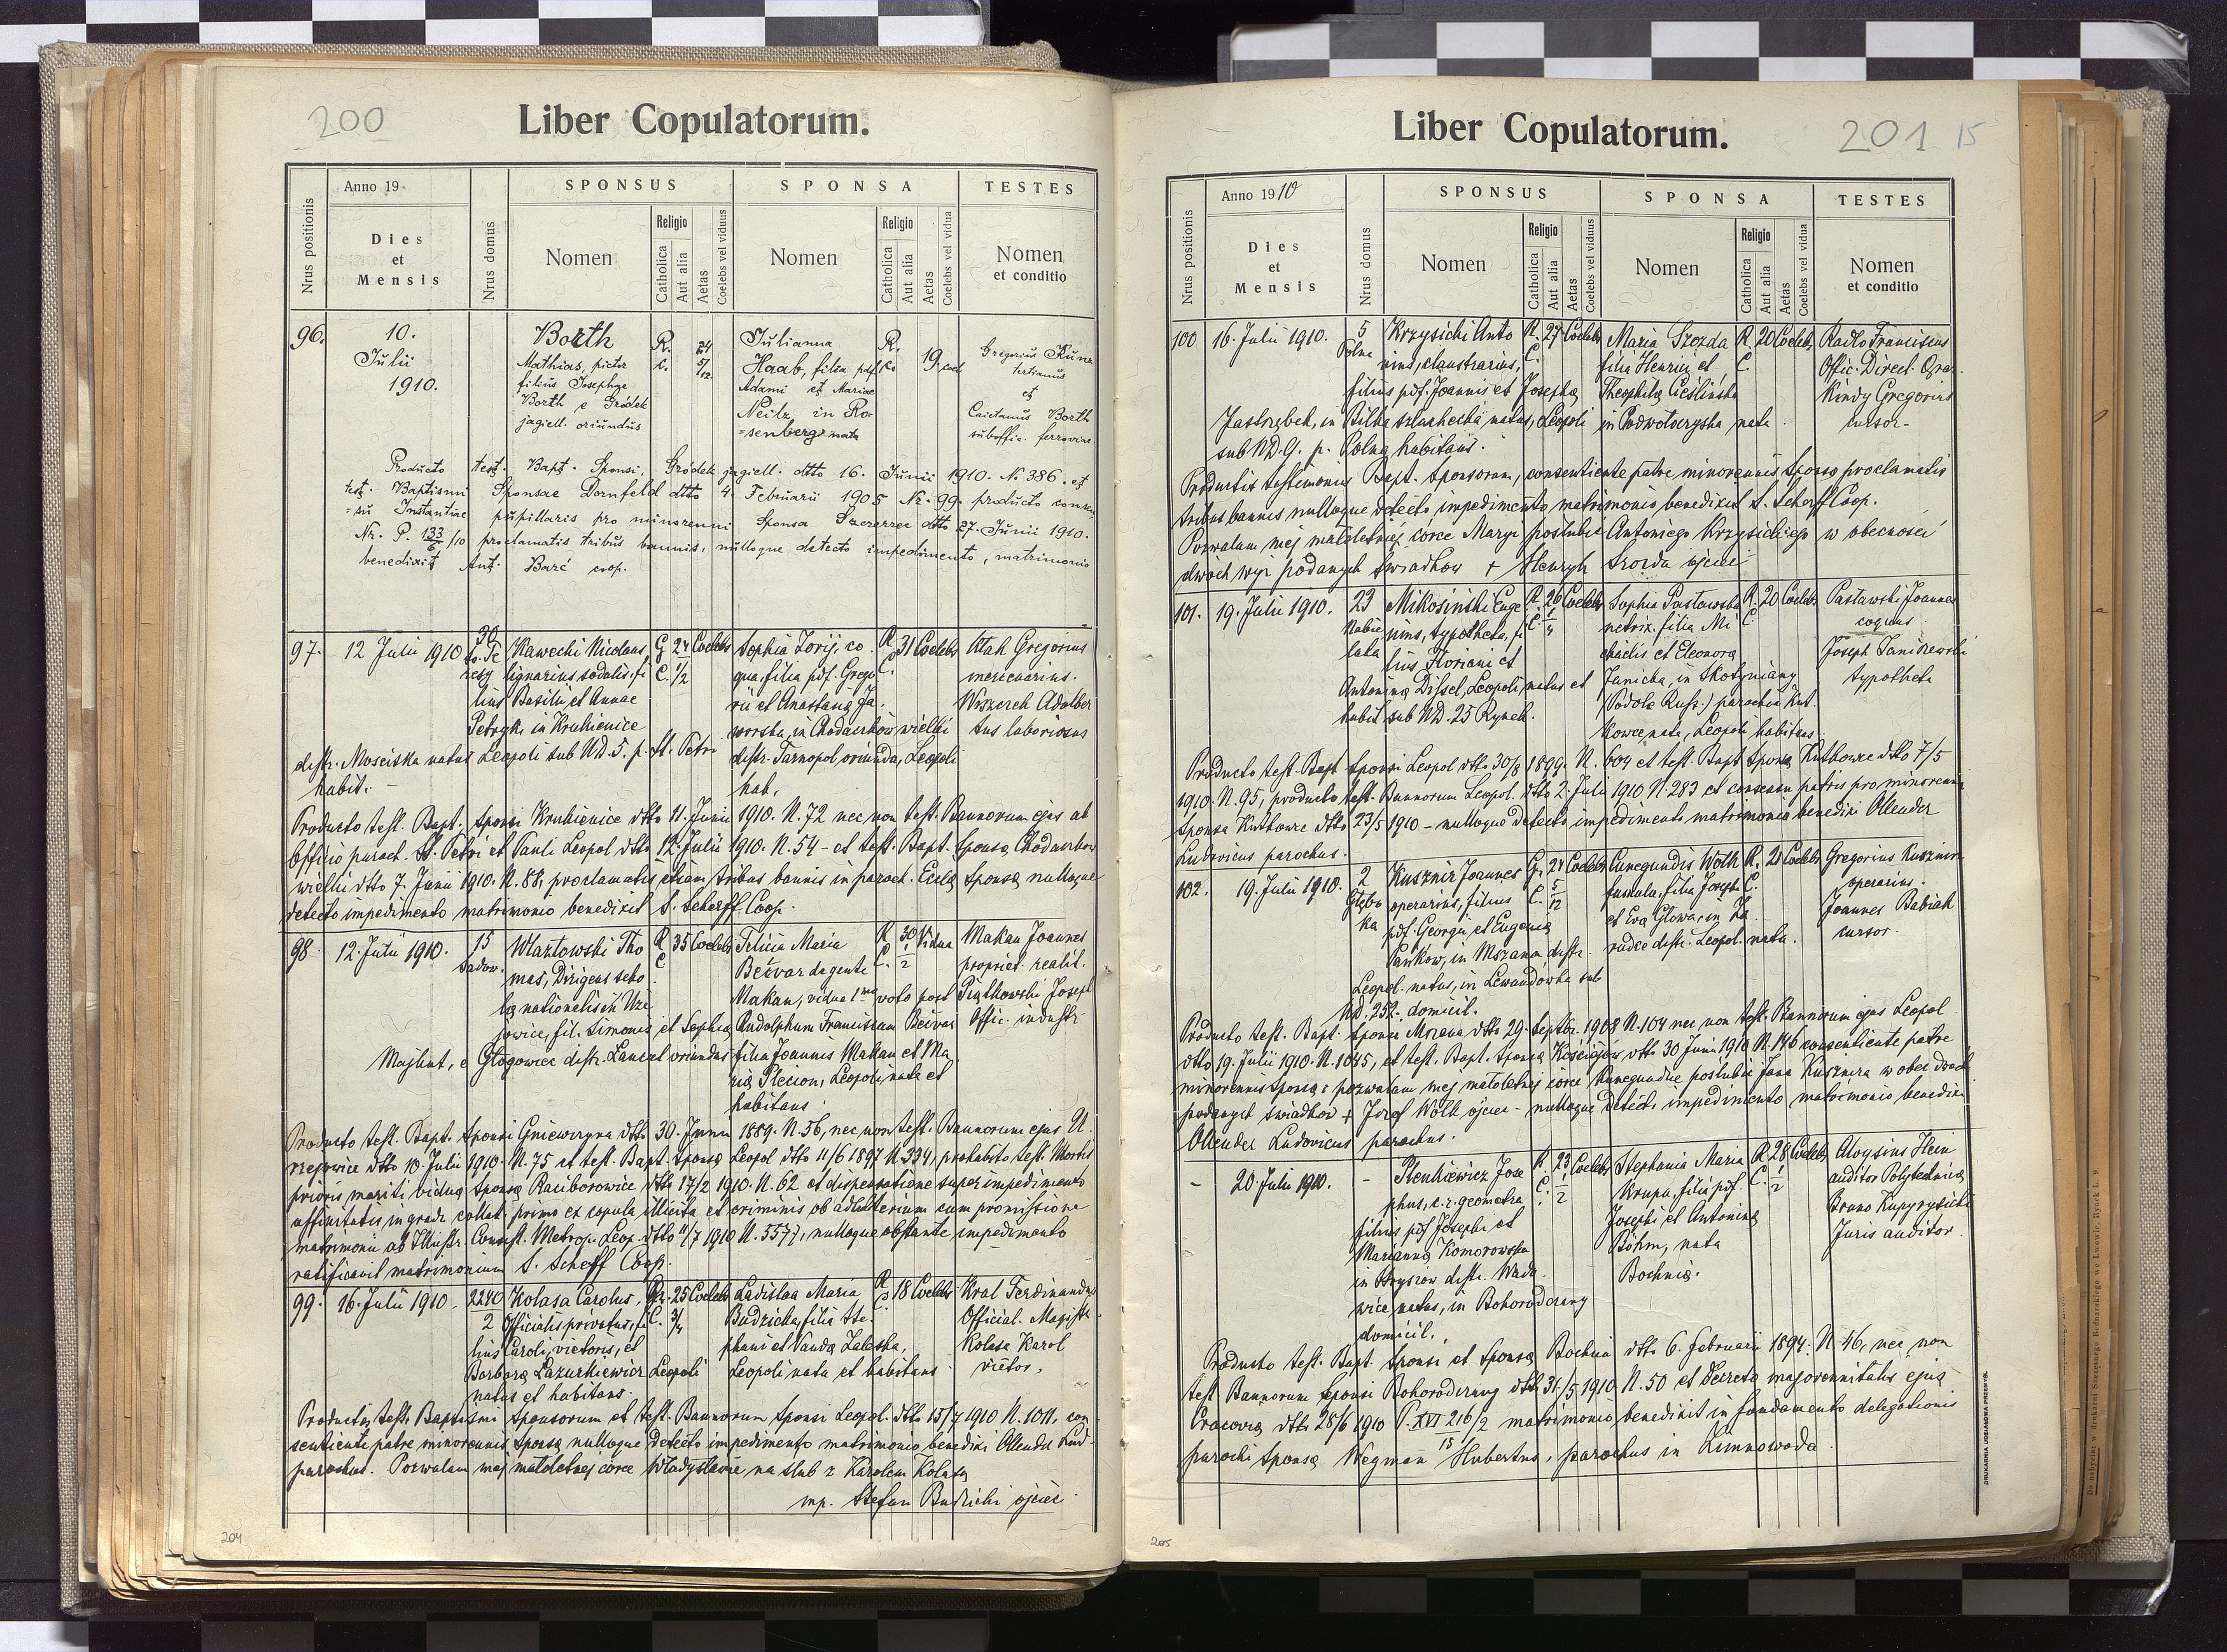 200
Liber Copulatorum.
Nrus positionis
Anno 19
Dies
et
Mensis
Nrus domus
SPONSUS
Nomen
Religio
Catholica
Aut alia
Aetas
Coelebs vel viduus
SPONSA
Nomen
Religio
Catholica
Aut alia
Aetas
Coelebs vel vidua
TESTES
Nomen
et conditio
96.
10.
Julii
1910.
Borth
Mathias, pictor
filius Josephi
Borth e Gródek
jagiell. oriundus
R.
c.
24
5/12
Julianna
Haab, filia pdf.
Adami et Mariae
Neitz, in Ro-
=senberg nata
R.
c.
19
coel
Gregorius Kuna
tertianus
et
Caietanus Borth
suboffic. ferroviae
Producto test. Bapt. Sponsi, Gródek jagiell. dtto 16. Junii 1910. № 386. et
test. Baptismi Sponsae Dornfeld dtto 4. Februarii 1905 Nr. 99. producto consen
=su Instantiae pupillaris pro minorenni Sponsa Szczerzec dtto 27. Junii 1910.
Nr. P. 133/6/10 proclamatis tribus bannis, nulloque detecto impedimento, matrimonio
benedixit Ant. Barć coop.
97.
12 Julii 1910
Kawecki Nicolaus
lignarius sodalis, fi
lius Basilii et Annae
Petryk, in Krukienice
distr. Mościska natus Leopoli sub ND. 5. p. St. Petri
habit. -
G
C.
24
1/2
Coelebs
Sophia Zorij, co
qua, filia pdf. Grego
rii et Anastasiae Ja
worska, in Chodaczków wielki
distr. Tarnopol, oriunda, Leopoli
hab.
R
C.
31
Coelebs
Ktah Gregorius
mercenarius.
Wiszerek Adalber
tus laboriosus
Producto test. Bapt. Sponsi Krukienice dtto 11. Junii 1910. N. 72 nec non test. Bannorum ejus ab
Officio paroch. St. Petri et Pauli Leopol dtto 12. Julii 1910. N. 54 - et test. Bapt. Sponsae Chodaczkow
wielki dtto 7. Junii 1910. N. 88, proclamatis etiam tribus bannis in paroch. Eccla Sponsae nulloque
detecto impedimento matrimonio benedixit S. Scherff Coop.
98.
12. Julii 1910.
15
Sadow.
Wlazłowski Tho
mas, Dirigens scho
lae nationalis in Uze
jowice, fil. Simonis et Sophiae
Majkut, e Głogowiec distr. Lancut oriundus
R
C
35
Coelebs
Felicia Maria
Bečvar de gente
Makan, vidua 1mo voto post
Rudolphum Franciscum Bečvar
filia Joannis Makan et Ma
riae Plecion, Leopoli nata et
habitans.
R
C.
30
1/2
Vidua
Makan Joannes
propriet. realit.
Piątkowski Joseph
Offic. industr.
Producto test. Bapt. Sponsi Gniewczyna dtto 30. Junii 1889. N. 56, nec non test. Bannorum ejus U
rzejowice dtto 10. Julii 1910. N. 75 et test. Bapt. Sponsae Leopol dtto 11/6 1897 N. 334, prohabito test. Mortis
prioris mariti viduae Sponsae Raciborowice dtto 17/2 1910. N. 62 et dispensatione super impedimento
affinitatis in gradu collat. primo ex copula illicita et criminis ob adulterium cum promissione
matrimonii ab Illustr. Consist. Metrop. Leop. dtto 11/7 1910 N. 5577, nulloque obstante impedimento
ratificavit matrimonium S. Scheff Coop.
99.
16. Julii 1910.
2240
2
Kolasa Carolus,
Officialis privatus, fi
lius Caroli, victoris, et
Barbarae Lazurkiewicz Leopoli
natus et habitans.
Gr.
C.
25
3/4
Coelebs
Ladislaa Maria
Budzicka, filia Ste
phani et Vandae Zaleska,
Leopoli nata et habitans.
R
C.
18
Coelebs
Kral Ferdinandus
Official. Magist.
Kolasa Karol
victor.
Productis test. Baptismi Sponsorum et test. Bannorum Sponsi Leopol. dtto 15/7 1910 N. 1011, con
sentiente patre minorennis Sponsae nulloque detecto impedimento matrimonio benedixi Ollender Lud.
parochus. Pozwalam mej małoletniej córce Władysławie na ślub z Karolem Kolasą
mp. Stefan Budzicki ojciec.
204
Liber Copulatorum.
201
15
Nrus positionis
Anno 1910
Dies
et
Mensis
Nrus domus
SPONSUS
Nomen
Religio
Catholica
Aut alia
Aetas
Coelebs vel viduus
SPONSA
Nomen
Religio
Catholica
Aut alia
Aetas
Coelebs vel vidua
TESTES
Nomen
et conditio
100
16. Julii 1910.
5
Polna
Krzysicki Anto
nius, claustrarius,
filius pdf. Joannis et Josephae
Jastrzębek, in Biłka szlachecka natus, Leopoli
sub ND. 9. p. Polna habitans.
R.
C.
27
Coelebs
Maria Szozda
filia Henrici et
Theophilae Cieślińska
in Podwołoczyska nata.
R.
C
20
Coelebs
Radło Franciscus
Offic. Direct. Gra.
Kindy Gregorius
cursor-
Productis testimoniis Bapt. Sponsorum, consentiente patre minorennis Sponsae proclamatis
tribus bannis nulloque detecto impedimento matrimonio benedixit S. Scherff Coop.
Pozwalam mej małoletniej córce Maryi poślubić Antoniego Krzysickiego w obecności
dwoch wyż podanych świadkow + Henryk Szozda ojciec
101.
19. Julii 1910.
23
Mikosiński Euge
nius, typotheta, fi
lius Floriani et
Antoninae Dissel, Leopoli natus et
habit sub ND. 25 Rynek.
R.
C.
26
1/4
Coelebs
Sophia Pastawska
netrix. filia Mi
chaelis et Eleonorae
Janicka, in Skotyniany
(Podole Russ.) parochia Kut
kowce nata, Leopoli habitans.
R.
C.
20
Coelebs
Pastawski Joannes
coquus
Joseph Janiszewski
typotheta
Producto test. Bapt Sponsi Leopol dtto 30/8 1899. N. 604 et test. Bapt Sponsae Kutkowce dtto 7/5
1910. N. 95, producto test. Bannorum Leopol. dtto 2. Julii 1910 N. 283 et consensu patris pro minorenni
Sponsa Kutkowce dtto 23/5 1910 - nulloque detecto impedimento matrimonio benedixi Ollender
Ludovicus parochus.
102.
19. Julii 1910.
2
Głębo
ka
Kusznir Joannes
operarius, filius
pdf. Georgii et Eugeniae
Pańkow, in Mszana distr.
Leopol. natus, in Lewandówka sub
ND. 252. domicil.
Gr.
C.
24
5/12
Coelebs
Cunegundis Wolk
famula, filia Josephi
et Evae Głowa, in Za
rudce distr. Leopol. nata.
R.
C.
20
Coelebs
Gregorius Kusznir
operarius.
Joannes Babiak
cursor.
Producto test. Bapt. Sponsi Mszana dtto 29. Septbr. 1908 N. 104 nec non test. Bannorum ejus Leopol.
dtto 19. Julii 1910. N. 1045, et test. Bapt. Sponsae Kościejów dtto 30 Junii 1910 N. 146 consentiente patre
minorennis Sponsae: pozwalam mej małoletniej córce Kunegundzie poślubić Jana Kusznira w obec dwoch
podanych świadkow + Józef Wolk ojciec - nulloque detecto impedimento matrimonio benedixi
Ollender Ludovicus parochus.
-
20. Julii 1910.
-
Plenkiewicz Jose
phus, c.r. geometra
filius pdf Josephi et
Mariannae Komorowska
in Stryszów distr. Wado
wice natus, in Bohorodczany
domicil.
R.
C.
23
1/2
Coelebs
Stephania Maria
Krupa, filia pdf.
Josephi et Antoninae
Böhm, nata
Bochnia.
R
C.
28
1/2
Coelebs
Aloysius Hein
auditor Polytechnicae
Bruno Kupyrysicki
Juris auditor.
Producto test. Bapt. Sponsi et Sponsae Bochnia dtto 6. Februarii 1894. N. 46, nec non
test Bannorum Sponsi Bohorodczany dtto 31/5 1910. N. 50 et Decreto majorennitatis ejus
Cracovia dtto 28/6 1910 P. XVI 216/15/2 matrimonio benedixit in fundamento delegationis
parochi Sponsae Wegman Hubertus, parochus in Zimnowoda.
205
DRUKARNIA UDZIAŁOWA PRZEMYŚL
Do nabycia w drukarni Szczęsnego Bednarskiego we Lwowie, Rynek L. 9.